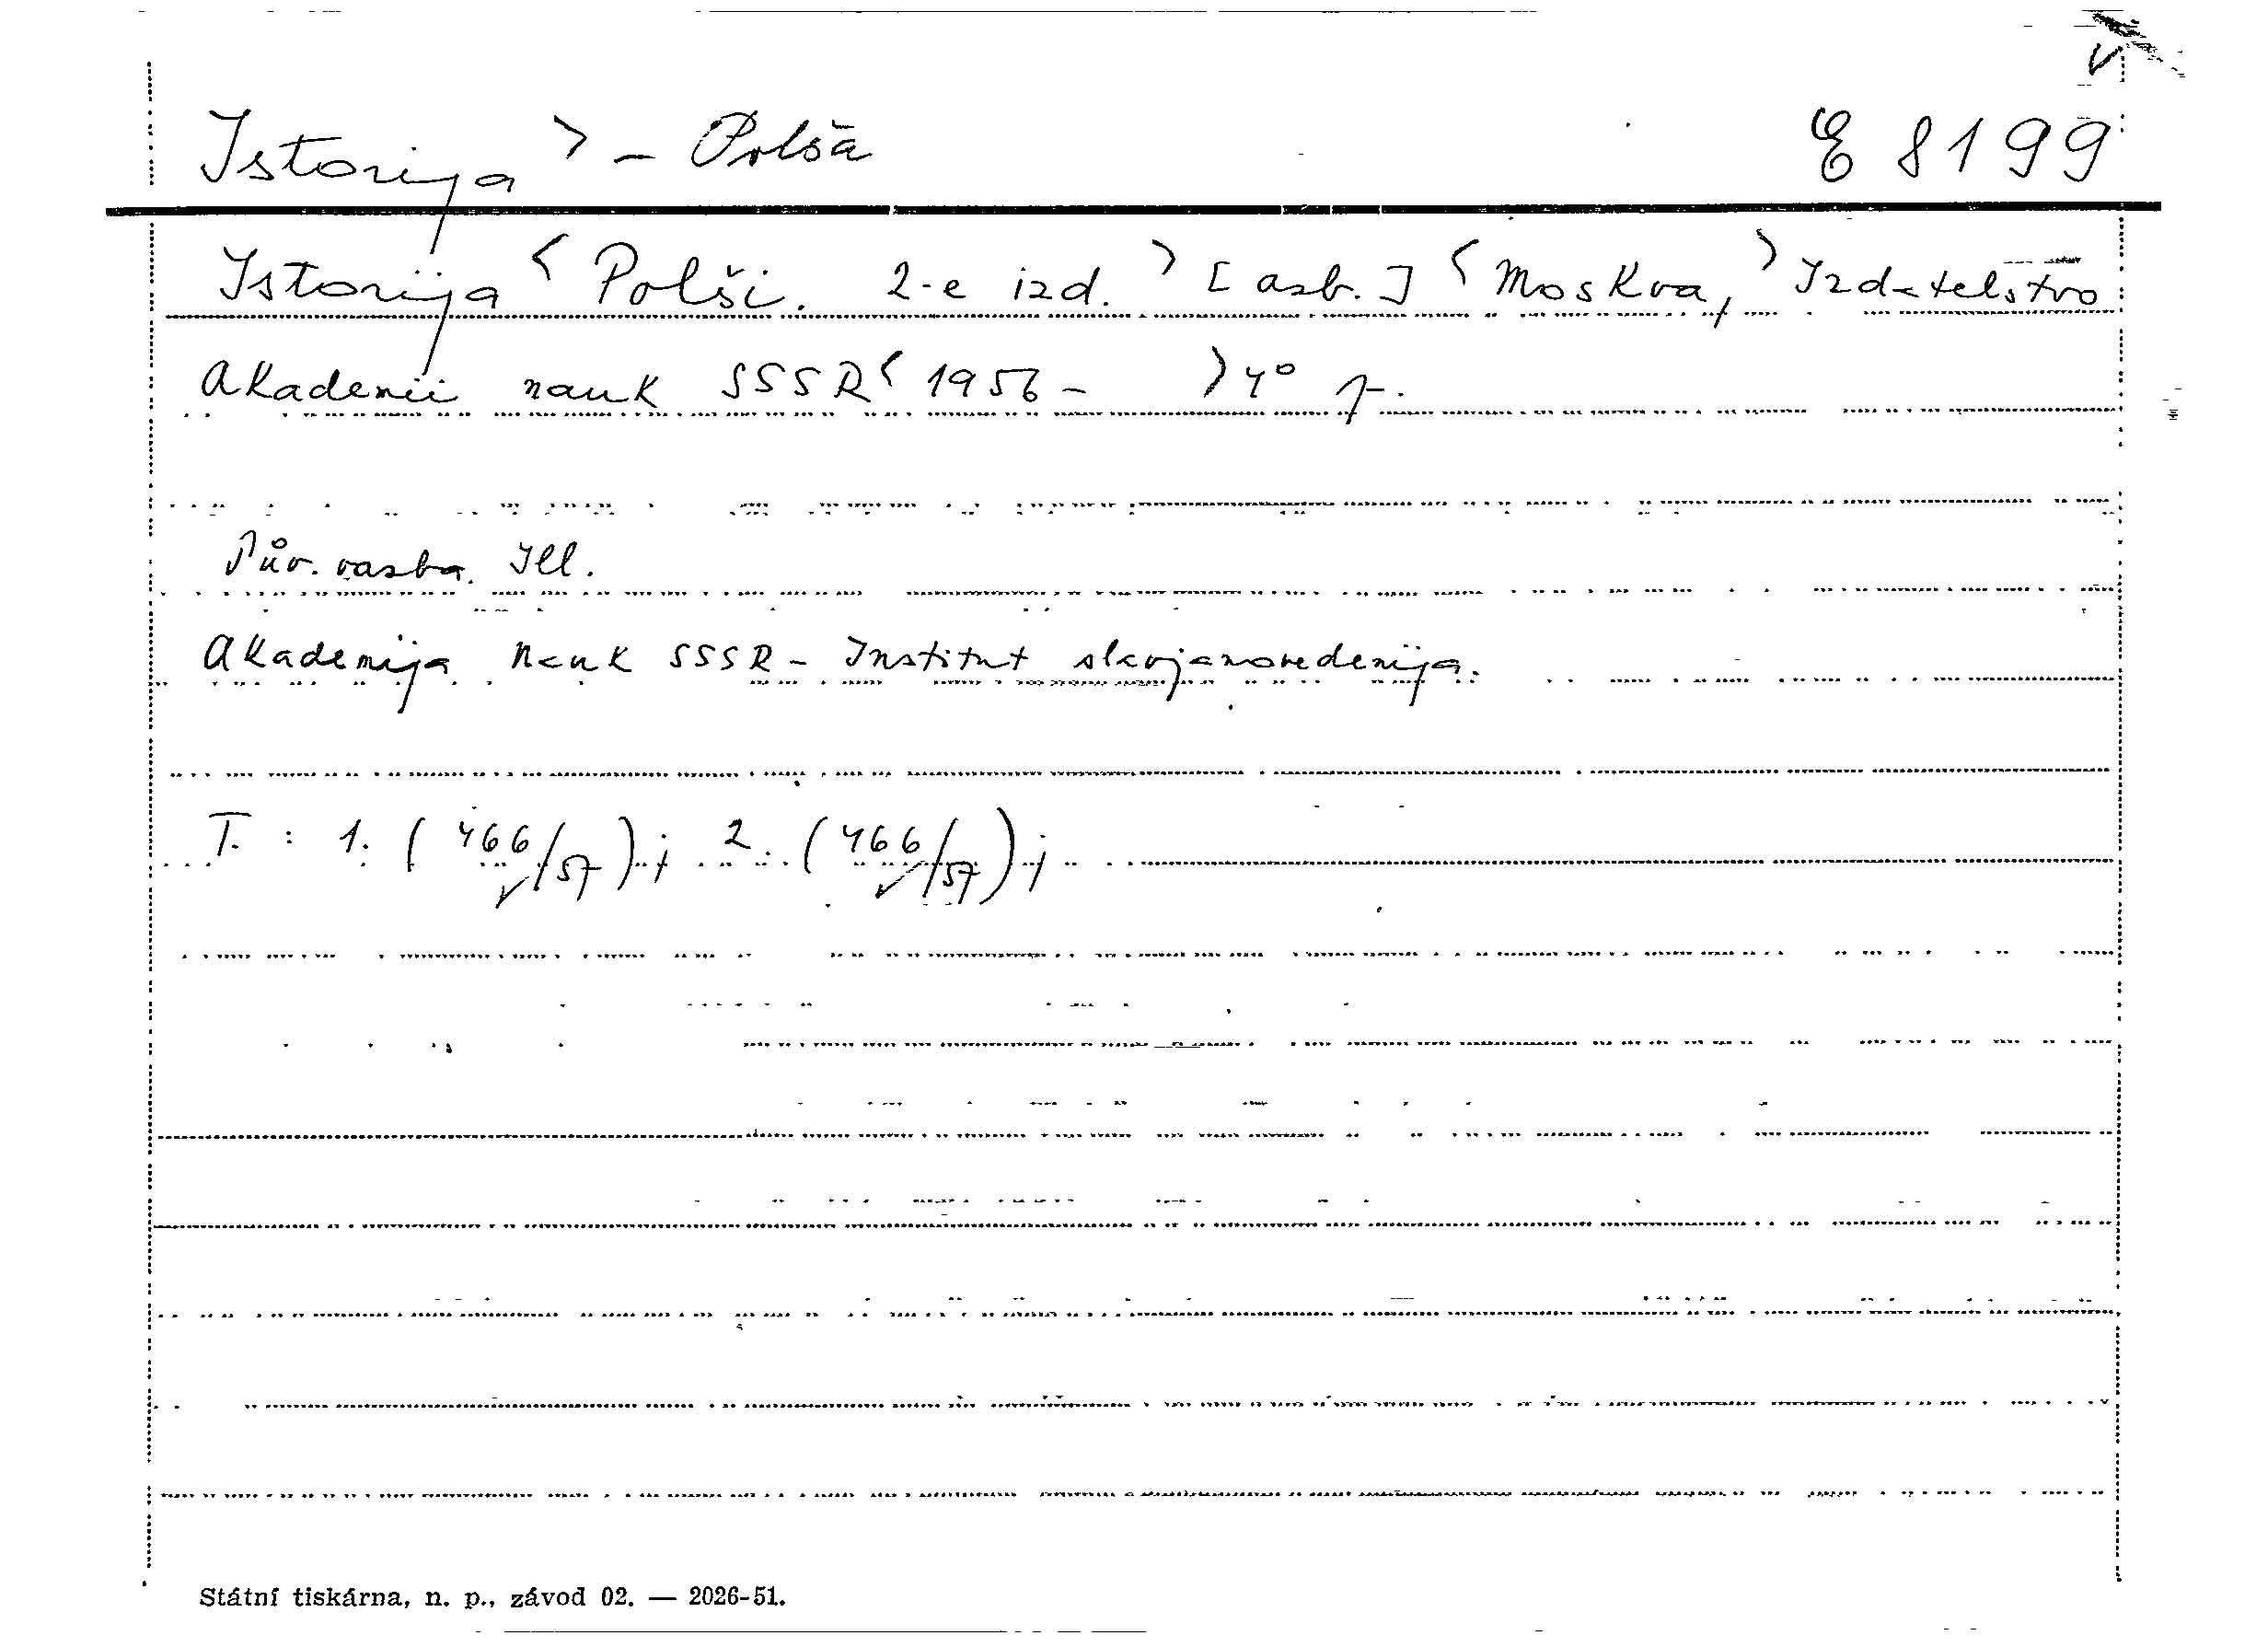 Istorija > - Polša E 8199
Istorija < Polši. 2-e izd. > [azb.] < Moskva, > Izdatelstvo
Akademii nauk SSSR < 1956 - > 4°
Pův. vazba. Ill.
Akademija Nauk SSSR - Institut slavjanovedenija.
T. : 1. ( 466/57 ); 2. ( 466/57 );
Státní tiskárna, n. p., závod 02. — 2026-51.